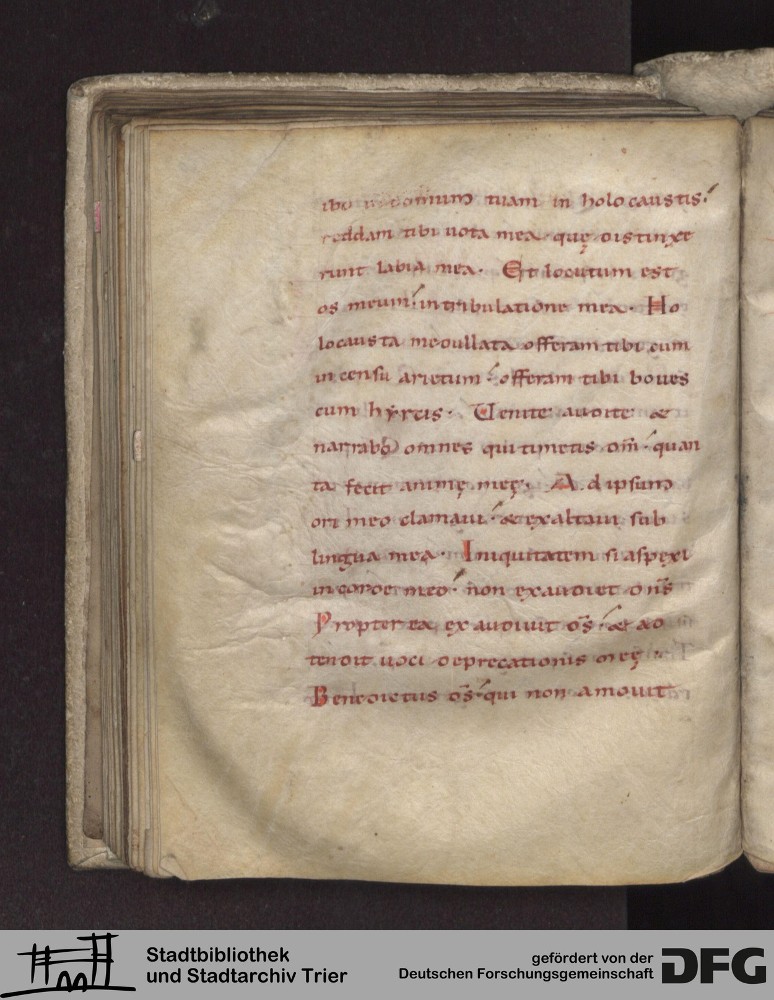 ibo in domum tuam in holocaustis.
reddam tibi uota mea quę distinxe
runt labia mea. Et locutum est
os meum. in tribulatione mea. Ho
locausta medullata offeram tibi cum
incensu arietum. offeram tibi boues
cum hyrcis. Uenite audite &
narrabo omnes qui timetis dm̄. quan
ta fecit animę meę. Ad ipsum
ore meo clamaui. & exaltaui sub
lingua mea. Iniquitatem si aspexi
in corde meo. non exaudiet dn̄s
Propterea exaudiuit ds̄. & ad
tendit uoci deprecationis meę.
Benedictus ds̄. qui non amouit
Stadtbibliothek
und Stadtarchiv Trier
gefördert von der
Deutschen Forschungsgemeinschaft
DFG